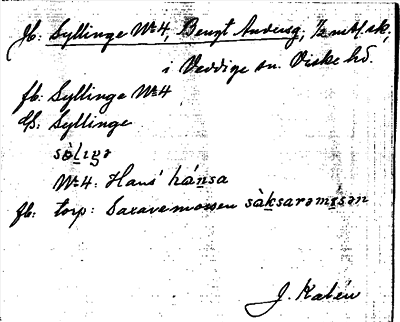 fb: Syllinge Nr 4, Bengt Anderss, 1/2 mtl. sk,
i Veddige sn. Viske hd.
fb: Syllinge Nr 4
GS: Syllinge
sø̀l̠ıŋə
Nr 4: Hans' há̠n̠sa
fb: torp: Saxaremossen sàk̠sarəmɪ̠sən
J. Kalén